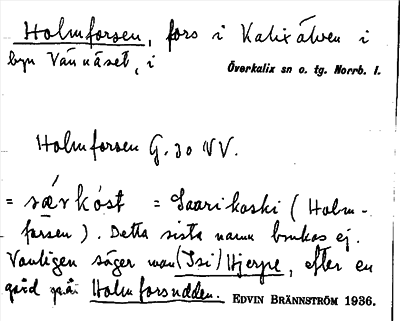 Holmforsen, fors i Kalix älven i
byn Vännäset, i Överkalix sn o. tg. Norrb. l.
Holmforsen G. 30 NV.
= = Saarikoski (Holm-
forsen). Detta sista namn brukas ej.
Vanligen säger man (Isi) Hjerpe, efter en
gård på Holmforsudden. EDVIN BRÄNNSTRÖM 1936.